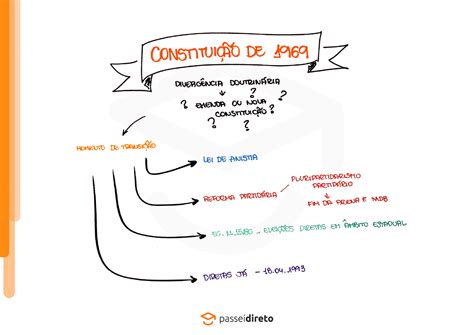 CONSTITUIÇÃO DE 1969
DIVERGÊNCIA DOUTRINÁRIA
? ?
? EMENDA OU NOVA ?
CONSTITUIÇÃO?
? ?
MOMENTO DE TRANSIÇÃO
LEI DE ANISTIA
REFORMA PARTIDÁRIA
PLURIPARTIDARISMO
PARTIDÁRIO
FIM DA ARENA E MDB
EC. N. 15/80 - ELEIÇÕES DIRETAS EM ÂMBITO ESTADUAL
DIRETAS JÁ - 18.04.1993
passeidireto